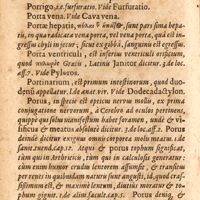 Porrigo, i.e. furfuratio. Vide Furfuratio.
Porta vena. Vide Cava vena.
Portæ hepatis, sunt pars sima hepa-
tis, in qua radicata vena porta, vel vena porta, quâ est in-
gressus chyli in jecur; sicut ex gibbâ, sanguinis est egressus.
Porta ventriculi, est inferius ventriculi orificium,
quod Græcis, Latinis Janitor dicitur. 3. de loc.
aff. 2. Vide Pylorus.
Portinarium, est primum intestinorum, quod duo-
denû appellatur. 1. de anat. viv. Vide Dodecadactylon.
Porus, in specie est opticus nervus mollis, ex prima
conjugatione nervorum, a Cerebro ad oculos pertinens,
quippe cum sensibilem habet perforationem, unde & vi-
sificus & meatus alibilis dicitur. 8. de us. part. 6. Porus
deinde dicitur exiguus omnis corporis mollis meatus. 1. de
sanit. tuend. cap. 12. atque & porus tophum significat,
tum qui in Arthriticis, tum qui in calculosis generatur:
dum enim humor crudus lentorem assumit, & præteritur
per renes in quibusdam naturis sunt angusti, id, quod crassi-
simum est, & maximè lentum, diutius moratur & to-
phum gignit. 3. de alim. facult. cap. 1. Porus deniq; &